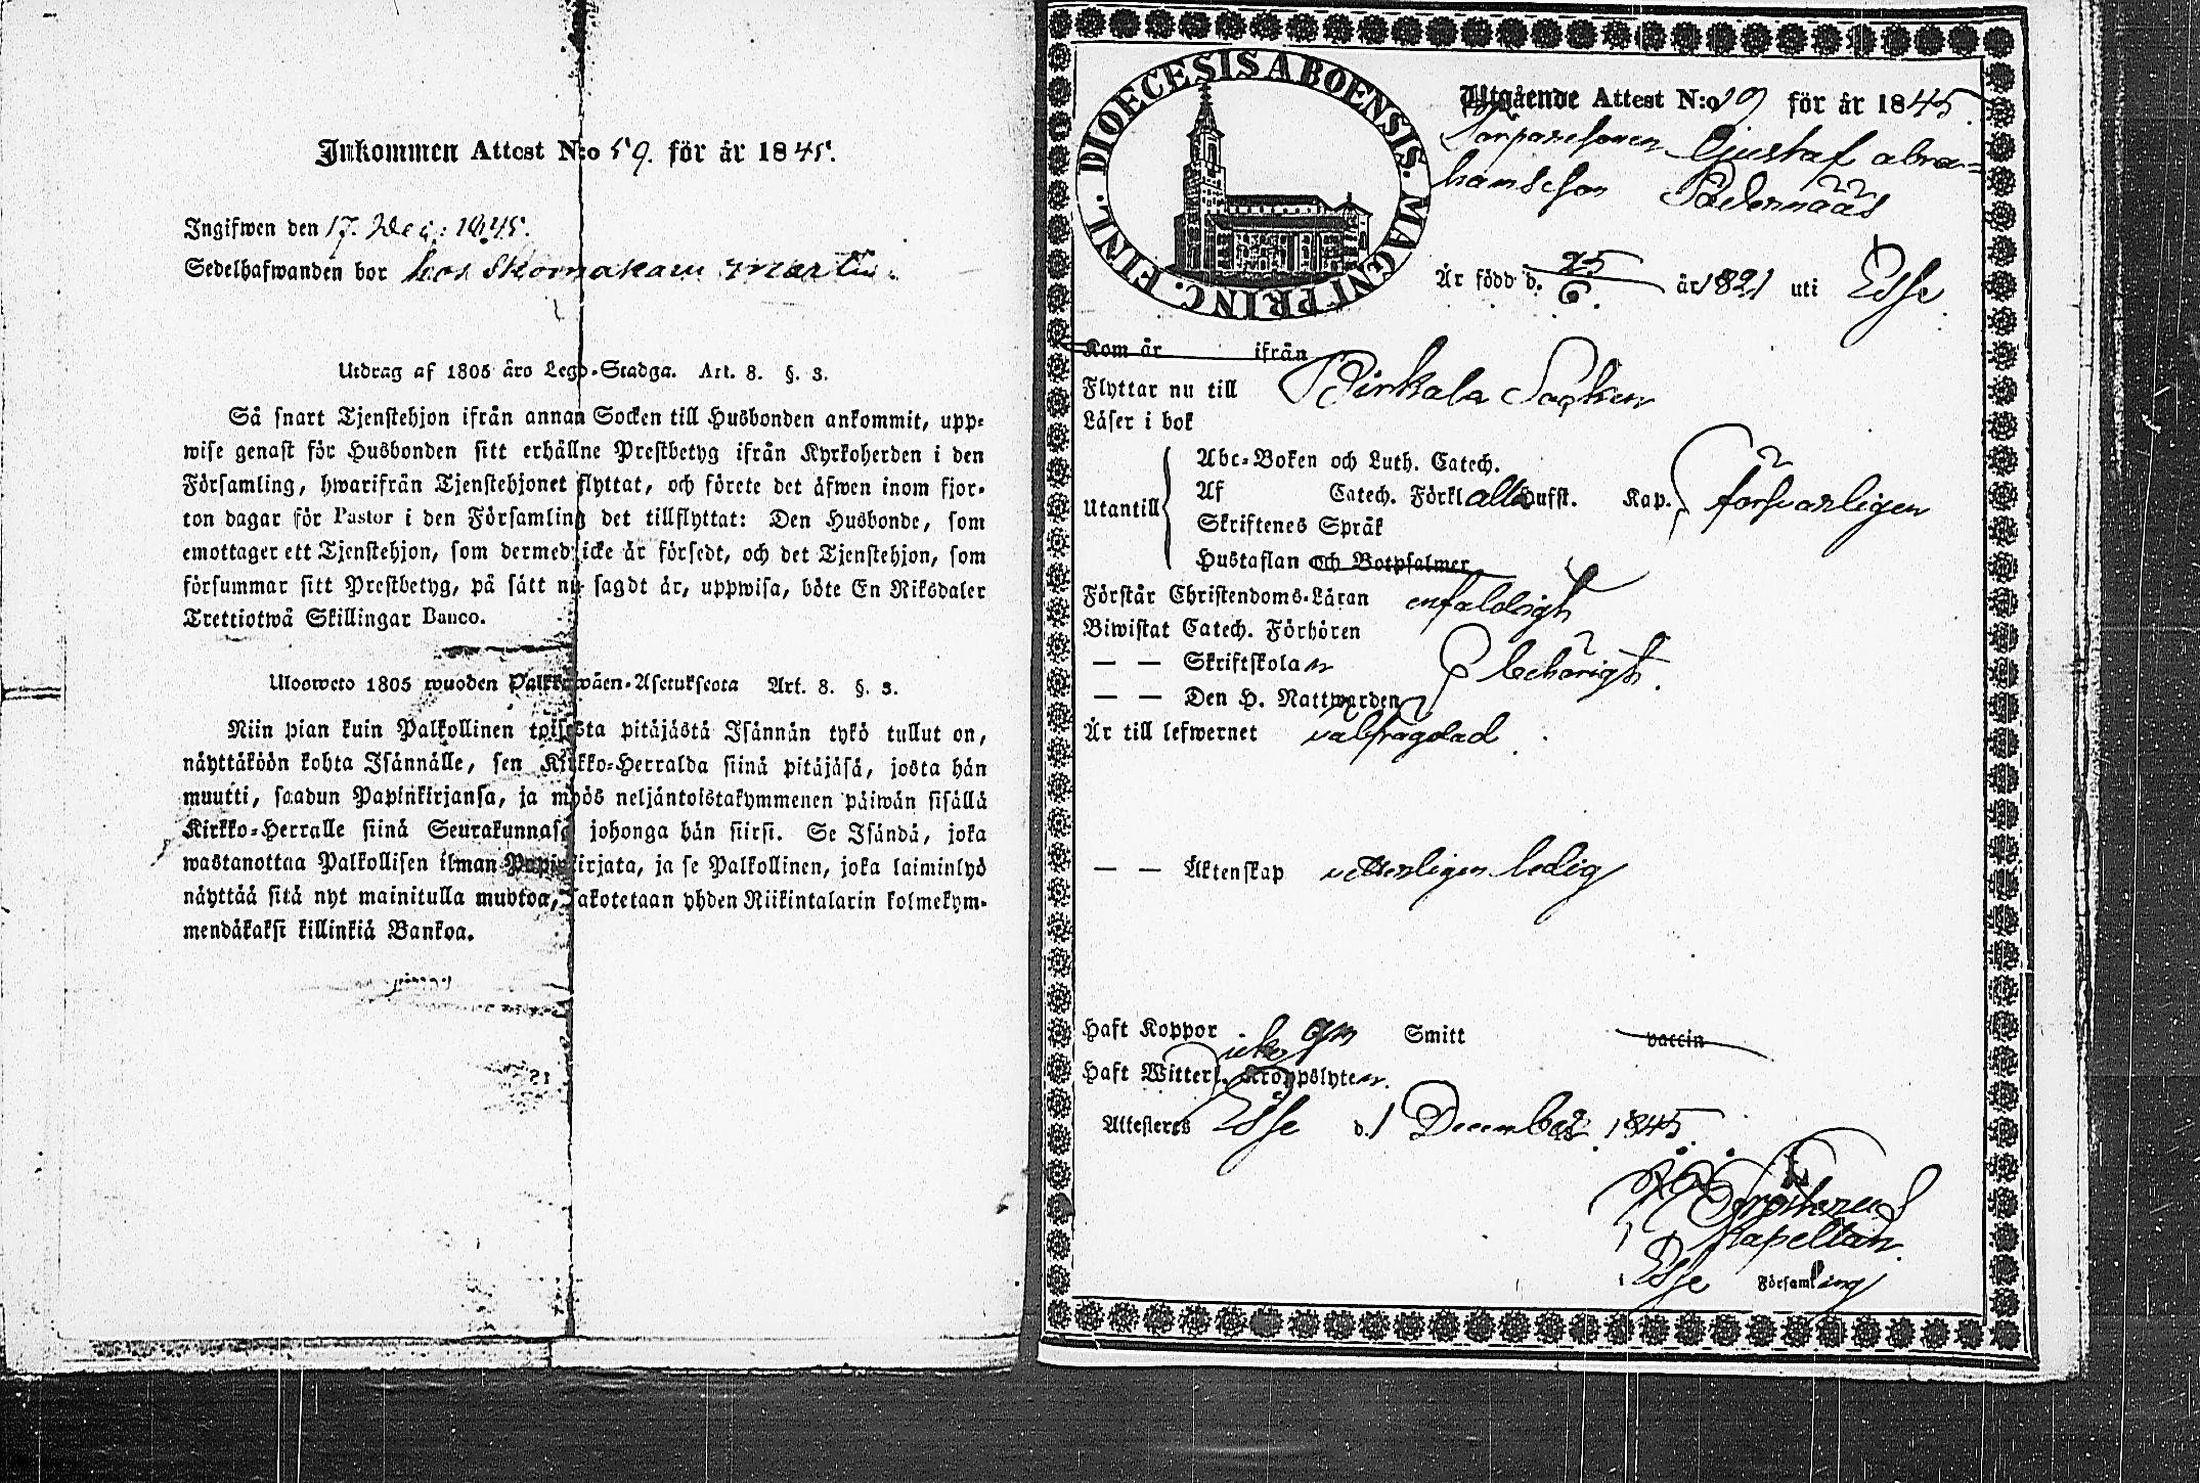 Inkommen Attest N:o 59. för år 1845.
Ingifwen den 17. Dec: 1845.
Sedelhafwanden bor hos Skomakaren Martin.
Utdrag af 1805 års Lego-Stadga. Art. 8. §. 3.
Så snart Tjenstehjon ifrån annan Socken till Husbonden ankommit, upp-
wise genast för Husbonden sitt erhållne Prestbetyg ifrån Kyrkoherden i den
Församling, hwarifrån Tjenstehjonet flyttat, och förete det äfwen inom fjor-
ton dagar för Pastor i den Församling det tillflyttat: Den Husbonde, som
emottager ett Tjenstehjon, som dermed icke är försedt, och det Tjenstehjon, som
försummar sitt Prestbetyg, på sätt nu sagdt är, uppwisa, böte En Riksdaler
Trettiotwå Skillingar Banco.
Ulosweto 1805 wuoden Palkkawäen-Asetuksesta Art. 8. §. 3.
Niin pian kuin Palkollinen toisesta pitäjästä Isännän tykö tullut on,
näyttäköön kohta Isännälle, sen Kirkko-Herralda siinä pitäjäsä, josta hän
muutti, saadun Papinkirjansa, ja myös neljäntoistakymmenen päiwän sisällä
Kirkko-Herralle siinä Seurakunnasa johonga hän siirsi. Se Isändä, joka
wastanottaa Palkollisen ilman Papinkirjata, ja se Palkollinen, joka laiminlyö
näyttää sitä nyt mainitulla muotoa, sakotetaan yhden Riikintalarin kolmekym-
mendäkaksi killinkiä Bankoa.
DIOECESIS ABOENSIS. MAGNI PRINC. FINL.
Utgående Attest N:o 19 för år 1845.
Torparesonen Gustaf Abra-
hamsson Pedernääs
Är född d. 25/6. år 1821 uti Esse.
Kom år ifrån
Flyttar nu till Birkala Socken
Läser i bok
Utantill
Abc-Boken och Luth. Catech.
Af Catech. Förkl alla Hufst. Kap. försvarligen
Skriftenes Språk
Hustaflan och Botpsalmer
Förstår Christendoms-Läran enfaldigt
Biwistat Catech. Förhören
— — Skriftskolan behörigt.
— — Den H. Nattwarden
Är till lefwernet välfrägdad.
— — Äktenskap vetterligen ledig
Haft Koppor Smitt vaccin
Haft Witterl. Kroppslyten.
Attesteres Esse d. 1 December 1845.
Kapellan
i Esse Församling